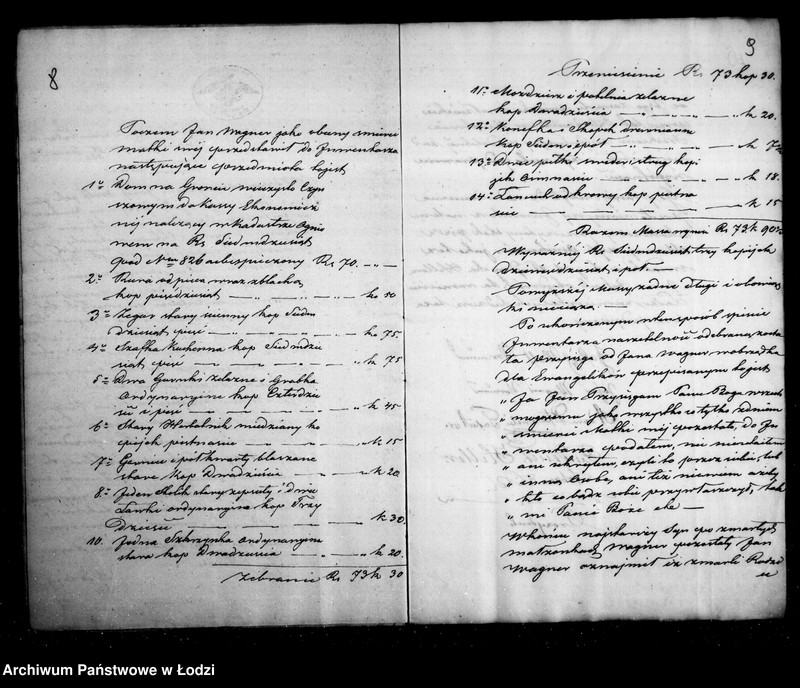 8
Poczem Jan Wagner jako obecny śmierci
matki swej przedstawił do Inwentarza
następujące przedmiota to jest
1o Dom na Gruncie wieczysto Czyn
szowym do kassy Ekonomicz
nej należący w Kadastrze Ognio
wem na Rs Siedmdziesiąt
pod Nrem 826 zabezpieczony Rs 70. — „ —
2o Rura od pieca wraz z blachą
kop pięćdziesiąt — „ — „ — ko 50
3o Zegar stary ścienny kop Siedm
dziesiąt pięć — „ — „ — ko 75.
4o Szafka Kuchenna kop Siedmdzie
siąt pięć — „ — „ — k 75
5o Dwa Garnki żelazne i Grabka
ordynaryjne kop Czterdzie
ści i pięć — „ — „ — k 45
6o Stary Herbatnik miedziany ko
piejek piętnaście — „ — „ — k 15
7o Garniec i pół kwarty blaszane
stare Kop Dwadzieście — „ — k 20
8o Jeden Stolik stary zepsuty i dwie
Ławki ordynaryjne kop Trzy
Dzieści — k 30
10. Jedna Skrzynka ordynaryjna
stara kop Dwadzieścia — „ — k 20.
Zebranie Rs 73 k 30
9
Przeniesienie Rs 73 kop 30.
11o Mozdzierz i żelazne
kop Dwadzieścia — „ — k 20.
12o Konefka i Skopek drewniana
kop Siedm i pół — „ — k 7½
13o Dwie
jek Ośmnaście — „ — k 18.
14o Łańcuch od krowy kop piętna
ście — k 15
Razem Massa wynosi Rs 73 k 90½
Wyraźniej Rs Siedmdziesiąt trzy kopiejek
Dziewięćdziesiąt i pół. —
Powyższej massy żadne długi i obowiąz
ki nieciążą.
Po ukończonym w ten sposób spisie
Inwentarza na rzetelność odebraną zosta
ła przysięga od Jana Wagner w obrządku
dla Ewangelików przepisanym to jest
„ Ja Jan Przysięgam Panu Bogu wszech
„ mogącemu jako wszystko co tylko z dniem
„ śmierci Matki mej pozostało, do In
„ wentarza podałem, nic nieutaiłem
„ ani ukryłem, czyli to przez siebie, lub
„ inną Osobę, ani też niewiem ażeby
„ kto co bądź sobie przywłaszczył, tak
„ mi Panie Boże etc —
W końcu najstarszy Syn po zmarłych
małżonkach Wagner pozostały Jan
Wagner oznajmił iż zmarli Rodzi
ce
Archiwum Państwowe w Łodzi